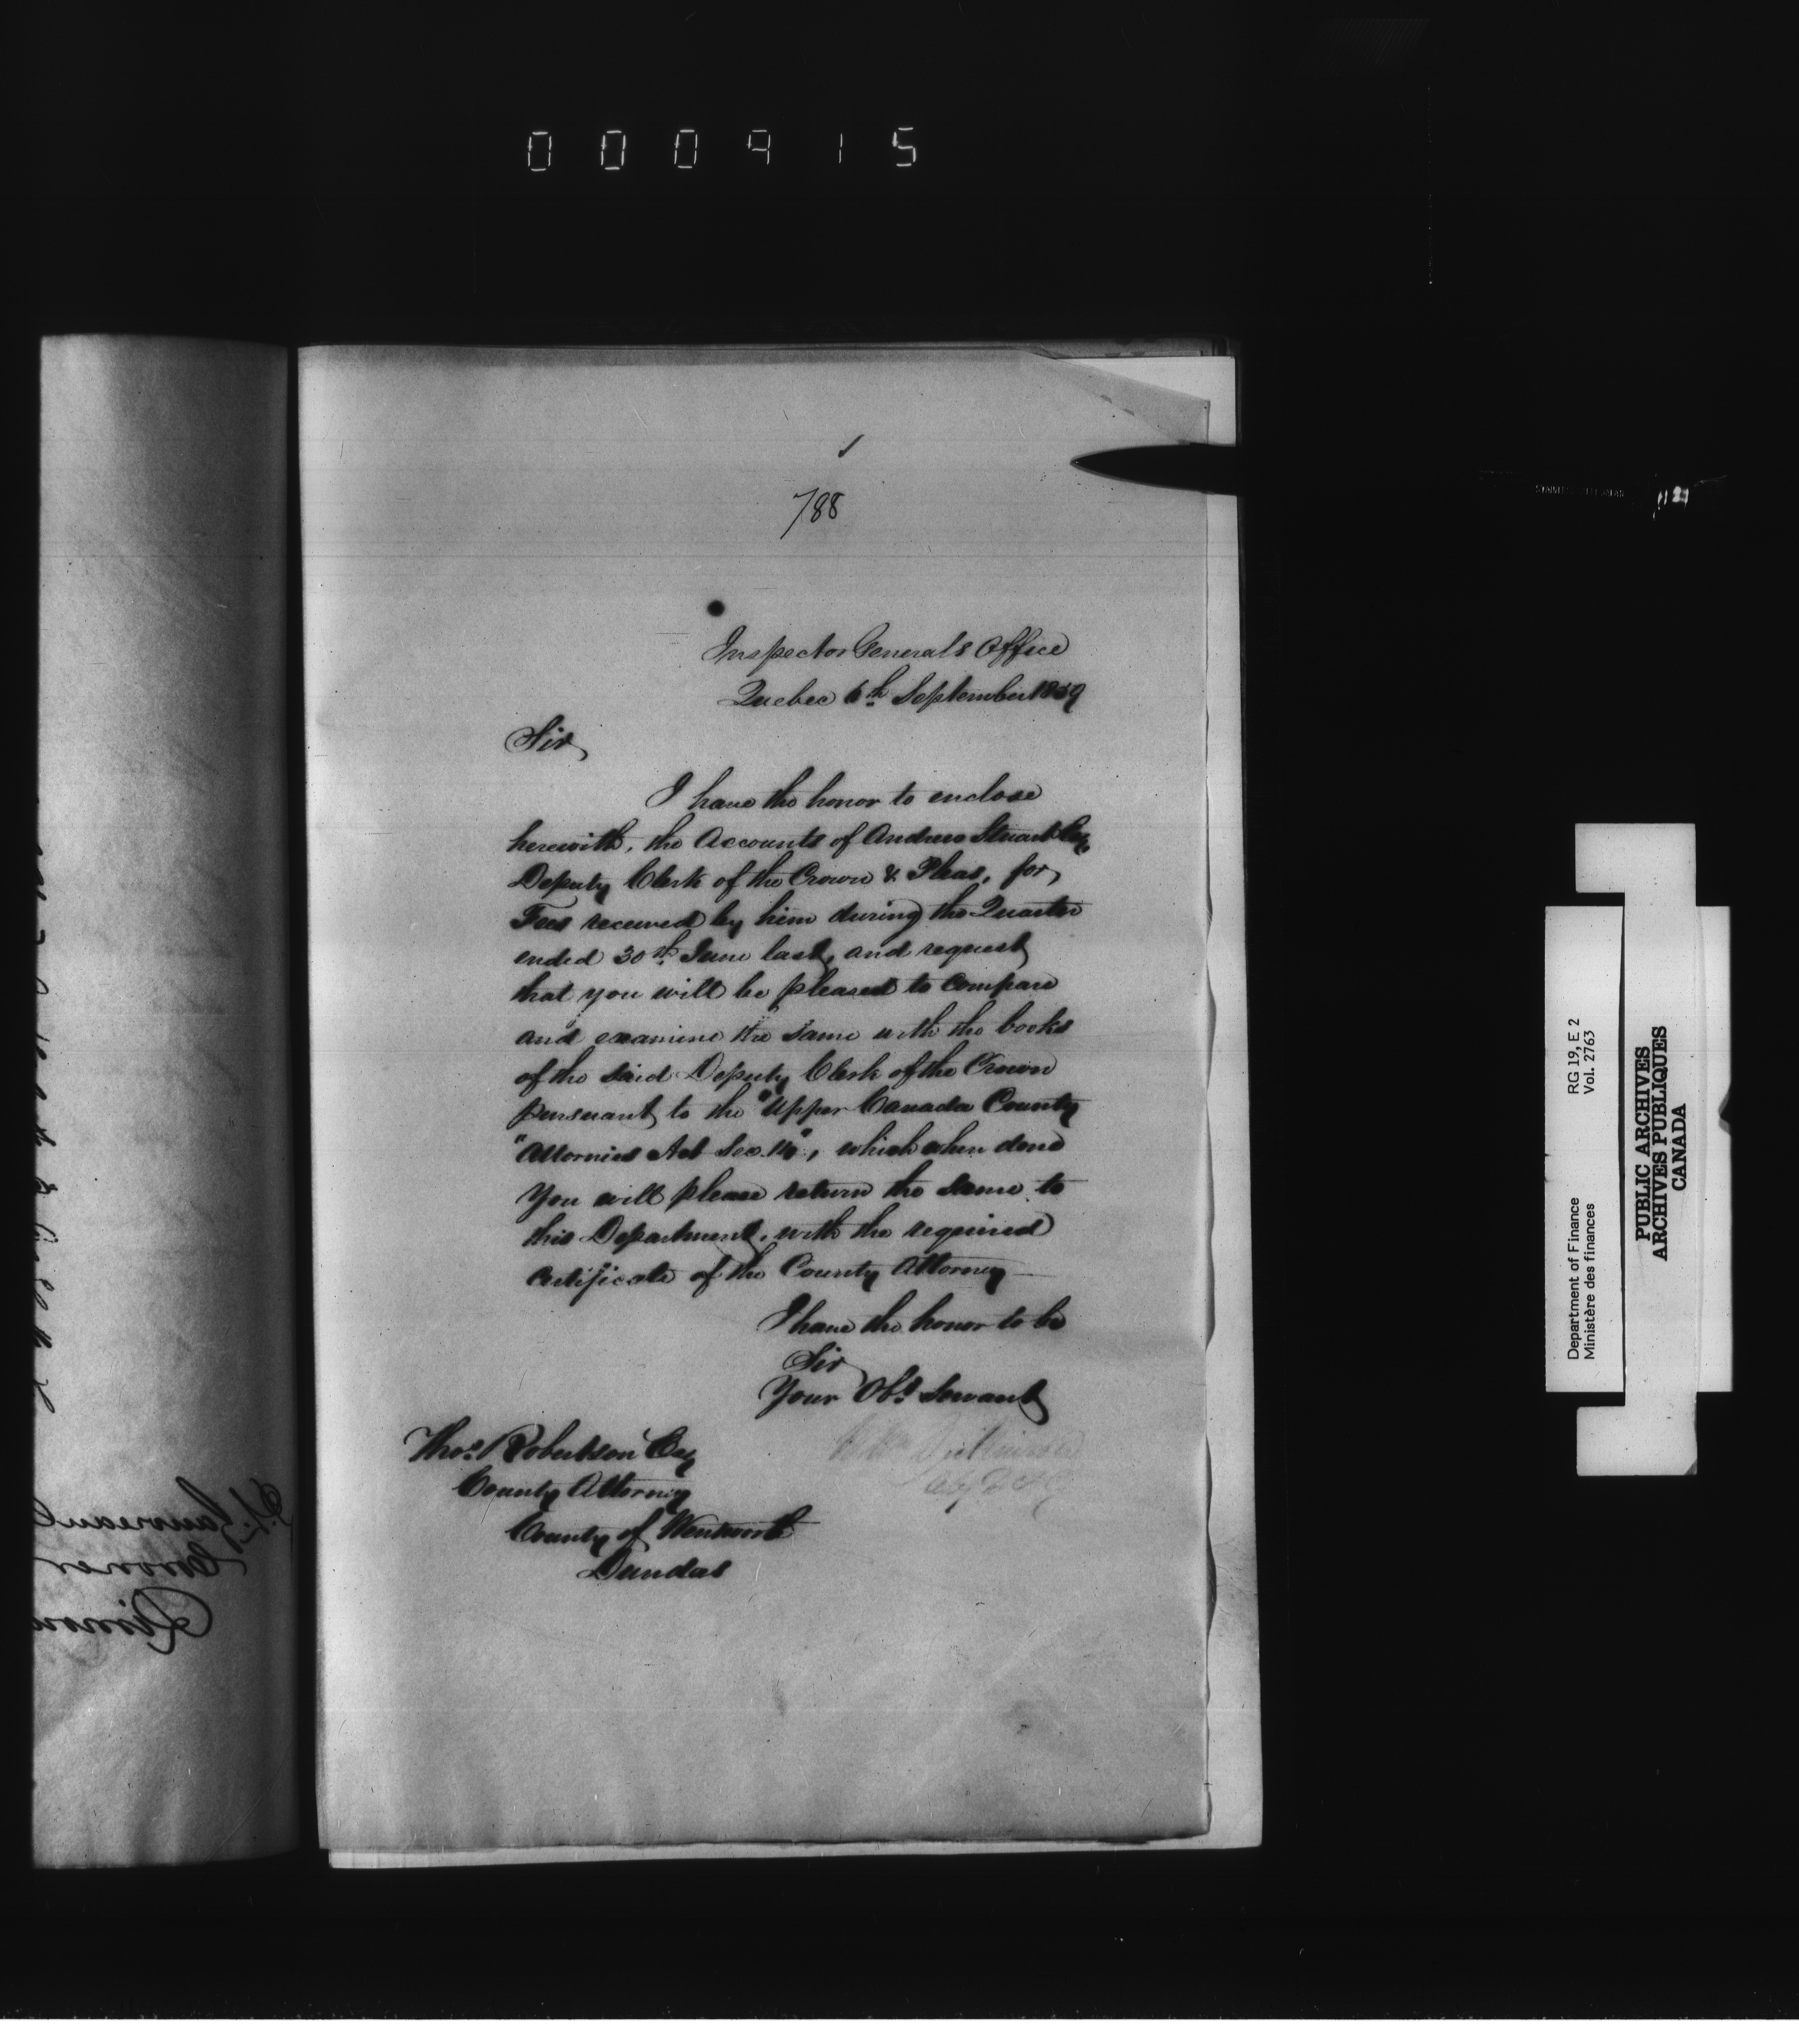 000915
788
Inspector Generals Office
Quebec 6th September 1859
Sir,
I have the honor to enclose
herewith, the Accounts of Andrew Stuart Esq,
Deputy Clerk of the Crown & Pleas, for
Fees received by him during the Quarter
ended 30th June last, and request
that you will be pleased to Compare
and examine the same with the books
of the said Deputy Clerk of the Crown
pursuant to the "Upper Canada County
"Attornies Act Sec. ", which when done
You will please return the same to
this Department, with the required
Certificate of the County Attorney
I have the honor to be
Sir
Your Obt Servant
Wm Dickinson
Thos Robertson Esq
County Attorney
County of Wentworth
Dundas
RG 19, E 2
Vol. 2763
Department of Finance
Ministère des finances
PUBLIC ARCHIVES
ARCHIVES PUBLIQUES
CANADA